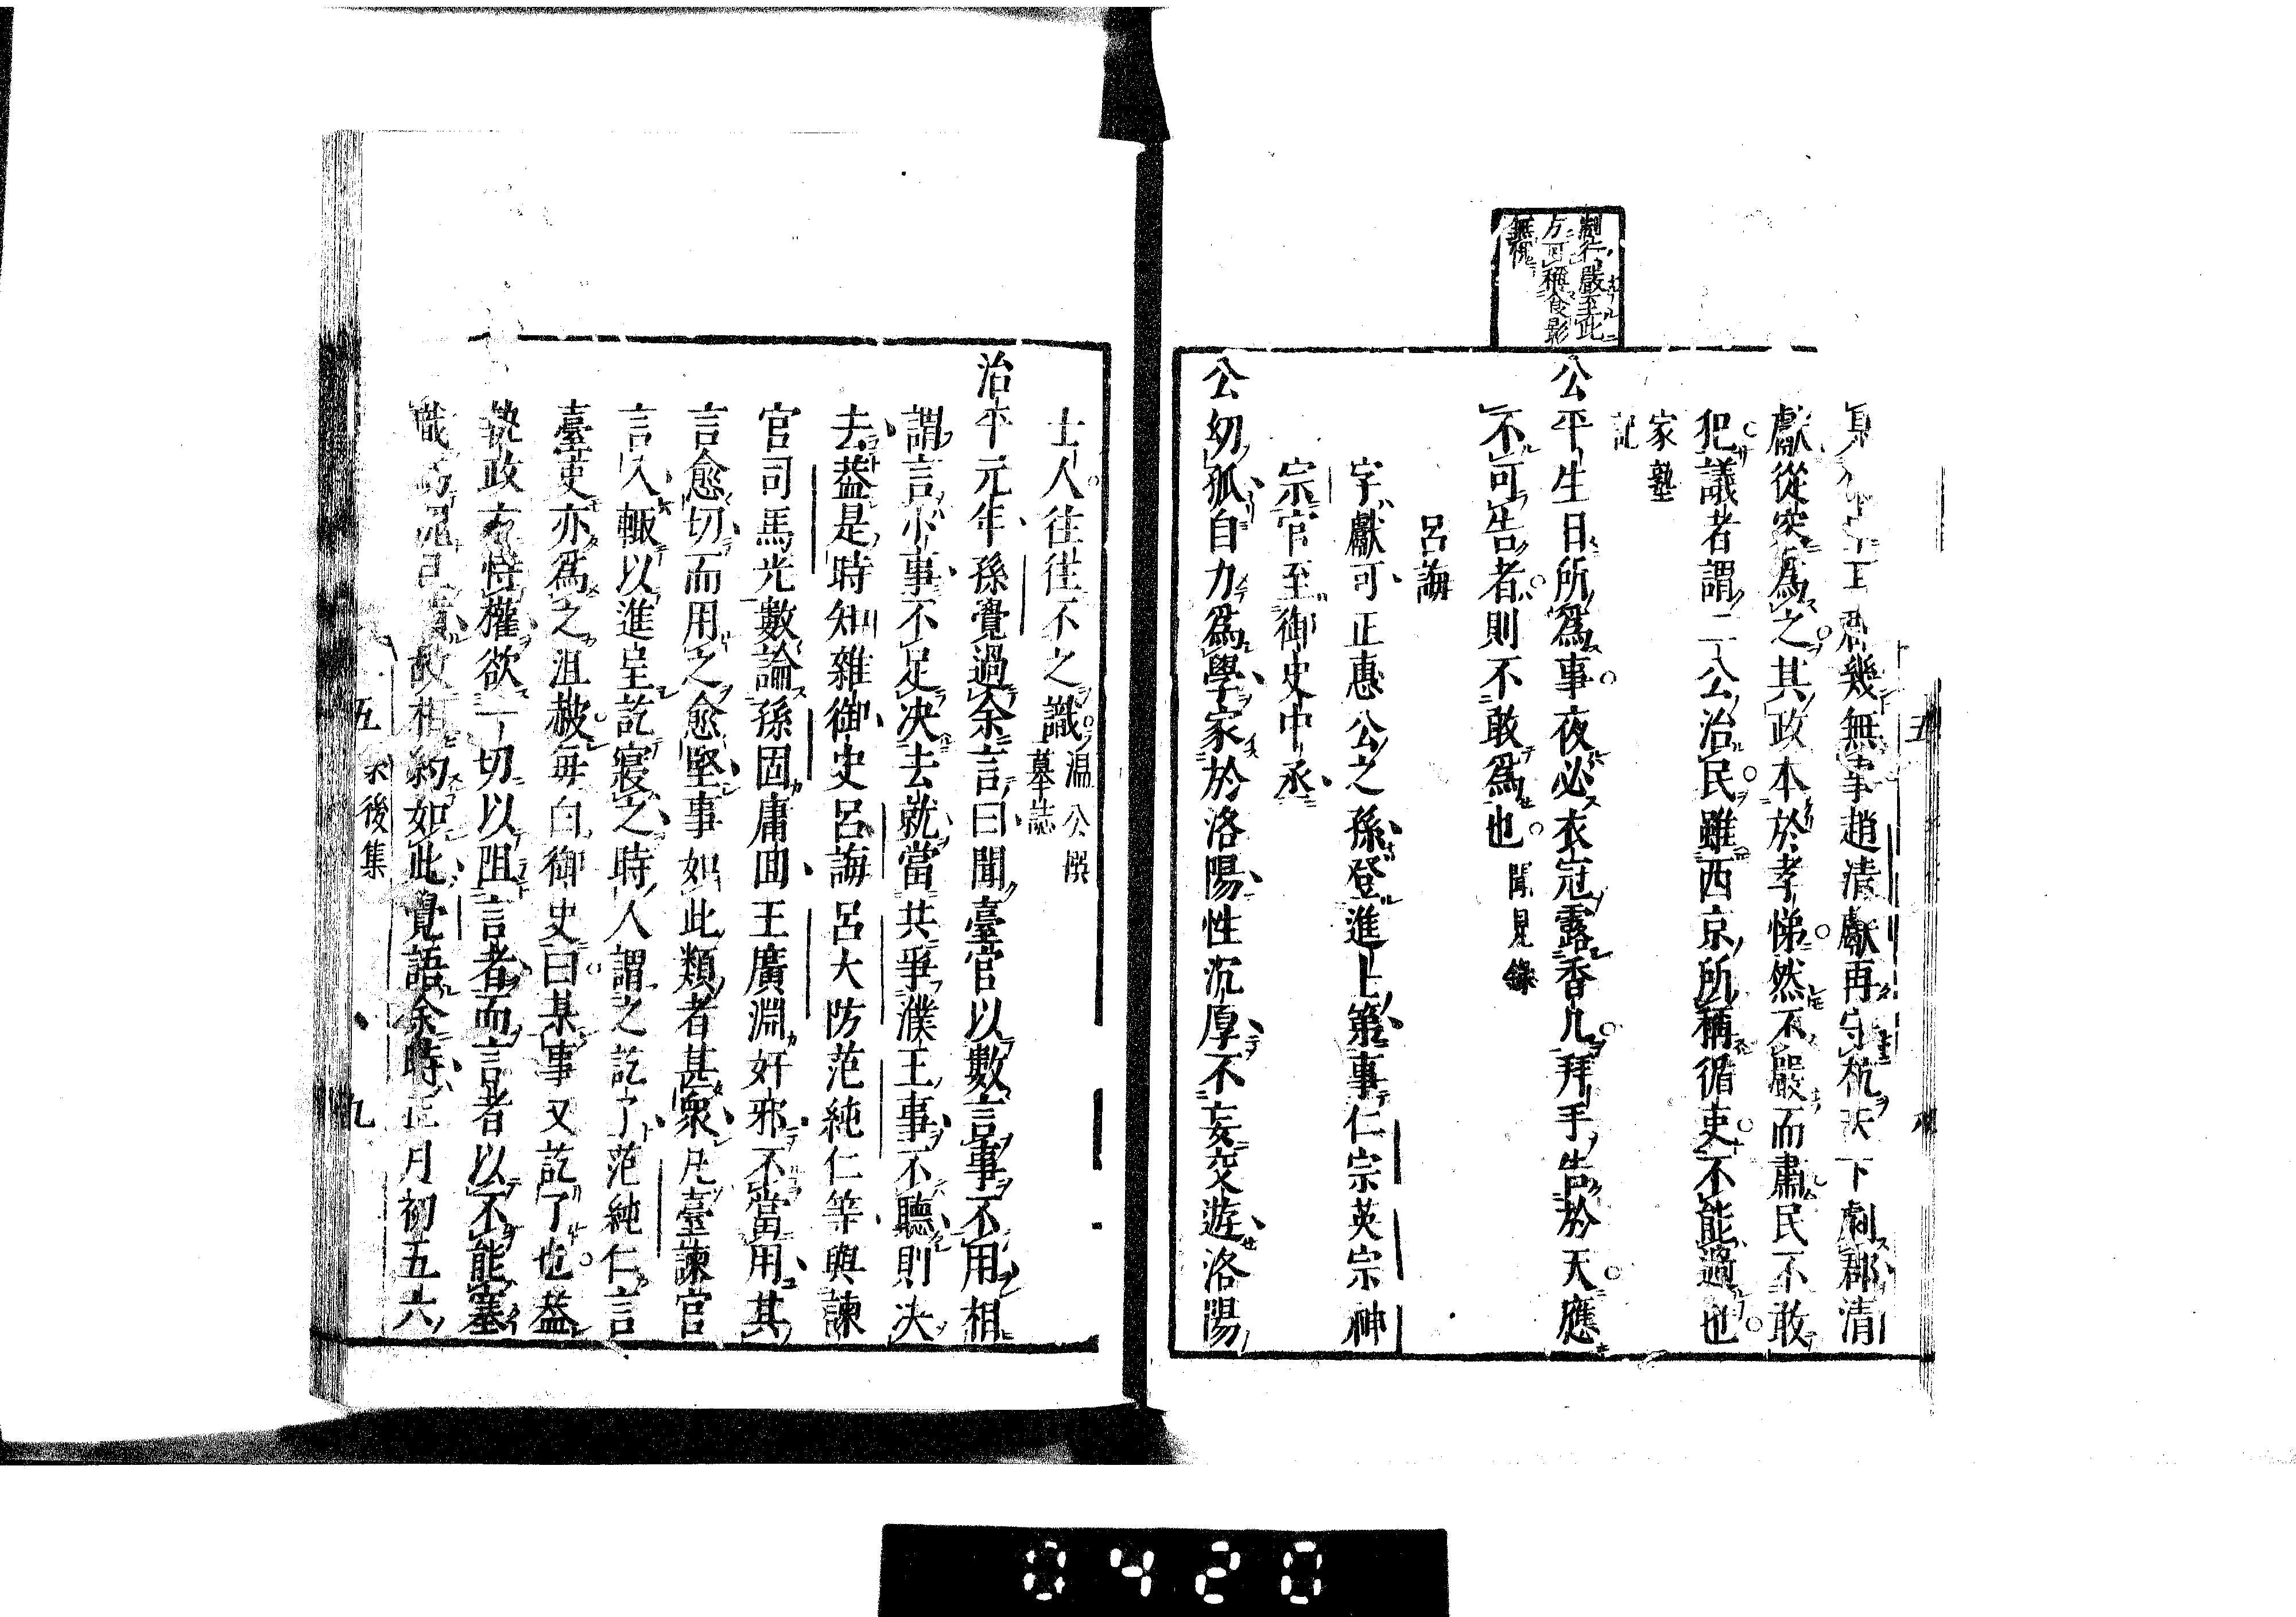 制行嚴至此
方可稱衾影
無愧
幾無事趙清獻再守杭天下劇郡清
獻從容為之其政本於孝悌然不嚴而肅民不敢
犯議者謂二公治民雖西京所稱循吏不能過也
家塾
記
公平生日所爲事夜必衣冠露香九拜手告於天應
不可告者則不敢爲也 聞見錄
呂誨
字獻可正惠公之孫登進士第事仁宗英宗神
宗官至御史中丞
公幼孤自力爲學家於洛陽性沉厚不妄交遊洛陽
士人往往不之識 温公撰
墓誌
治平元年孫覺過余言曰聞臺官以數言事不用相
謂言小事不足决去就當共爭濮王事不聽則决
去葢是時知雜御史呂誨呂大防范純仁等與諫
官司馬光數論孫固庸回王廣淵奸邪不當用其
言愈切而用之愈堅事如此類者甚衆凡臺諫官
言入輙以進呈訖寢之時人謂之訖了范純仁言
臺吏亦爲之沮赧每白御史曰某事又訖了也葢
執政方恃權欲一切以阻言者而言者以不能塞
職 故相約如此覺語余時正月初五六
五 後集 九
0420